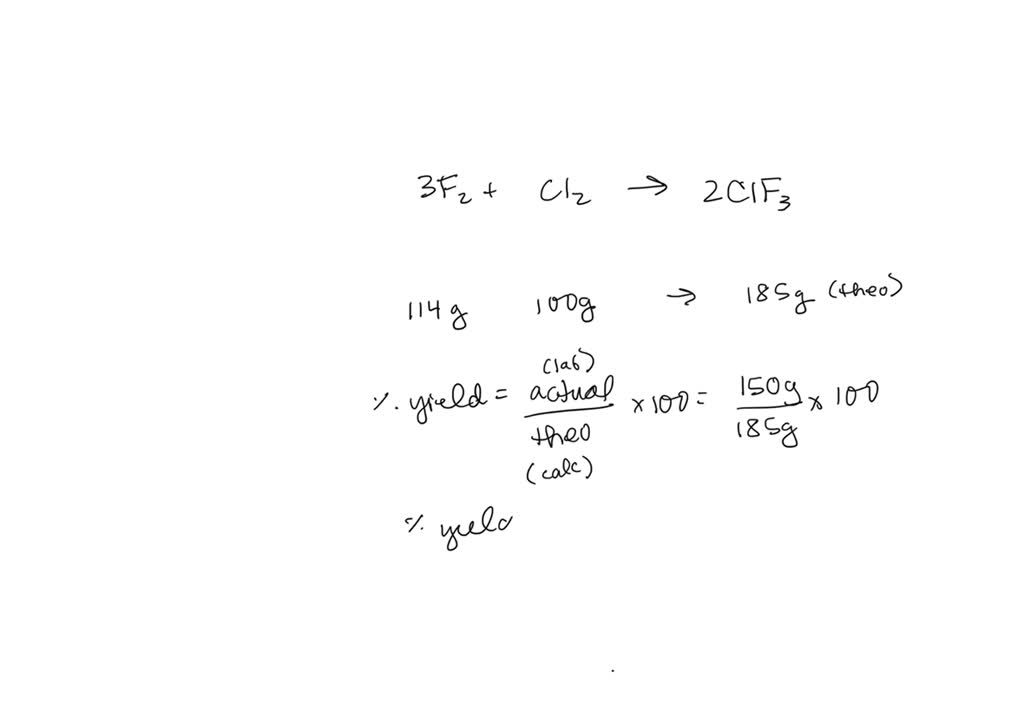 3F₂ + Cl₂ → 2ClF₃
114 g 100g → 185g (theo)
% yield = (lab) actual / theo (calc) × 100 = 150g / 185g × 100
% yield